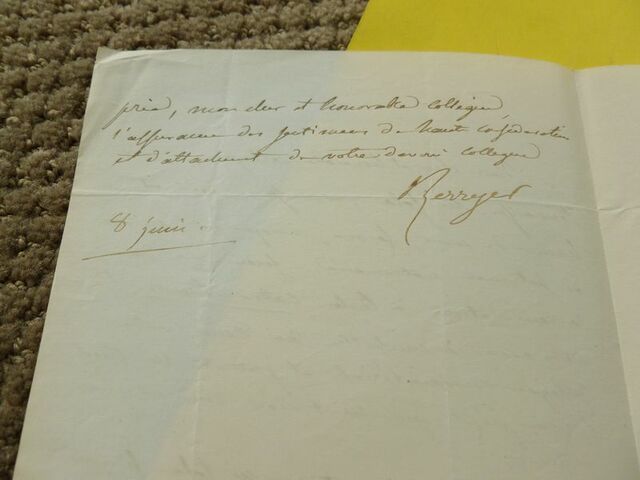 prie, mon cher et honorable collègue,
l'assurance des sentimens de haute considération
et d'attachement de votre dévoué collegue
Berryer
8 juin.